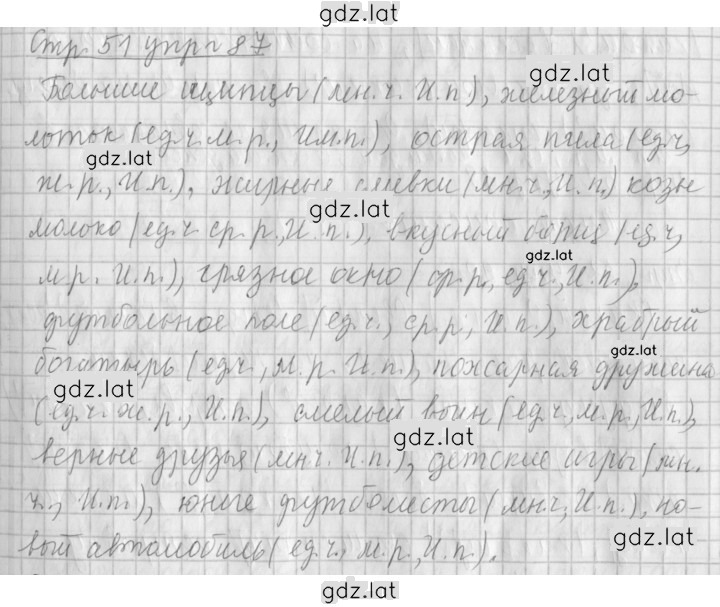 gdz.lat
Стр. 51 упр. 87
Большие щипцы (мн.ч. И.п.), железный мо-
gdz.lat
лоток (ед.ч. м.р., Им.п.), острая пила (ед.ч,
gdz.lat
ж.р., И.п.), жирные сливки (мн.ч., И.п.) козье
gdz.lat
молоко (ед.ч. ср.р., И.п.), вкусный (ед.ч,
gdz.lat
м.р. И.п.), грязное окно (ср.р., ед.ч., И.п.),
футбольное поле (ед.ч., ср.р, И.п.), храбрый
gdz.lat
богатырь (ед.ч., м.р. И.п.), пожарная дружина
gdz.lat
(ед.ч. ж.р., И.п.), смелый воин (ед.ч., м.р., И.п.),
gdz.lat
верные друзья (мн.ч. И.п.), детские игры (мн.
ч., И.п.), юные футболисты (мн.ч, И.п.), но-
gdz.lat
вый автомобиль (ед.ч., м.р., И.п.).
gdz.lat